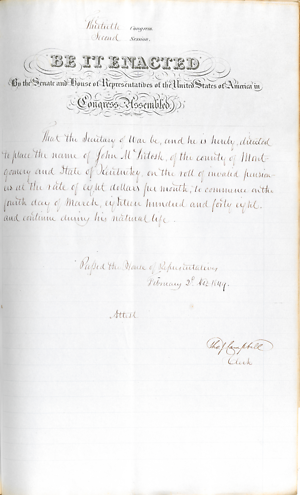 Thirtieth Congress
Second Session.
BE IT ENACTED
By the Senate and House of Representatives of the United States of America in
Congress Assembled,
That the Secretary of War be, and he is hereby, directed
to place the name of John McIntosh, of the county of Mont
gomery and State of Kentucky, on the roll of invalid pension
ers at the rate of eight dollars per month, to commence on the
fourth day of March, eighteen hundred and forty eight
and continue during his natural life.
Passed the House of Representatives
February 2d 1849.
Attest
Thos J Campbell
Clerk